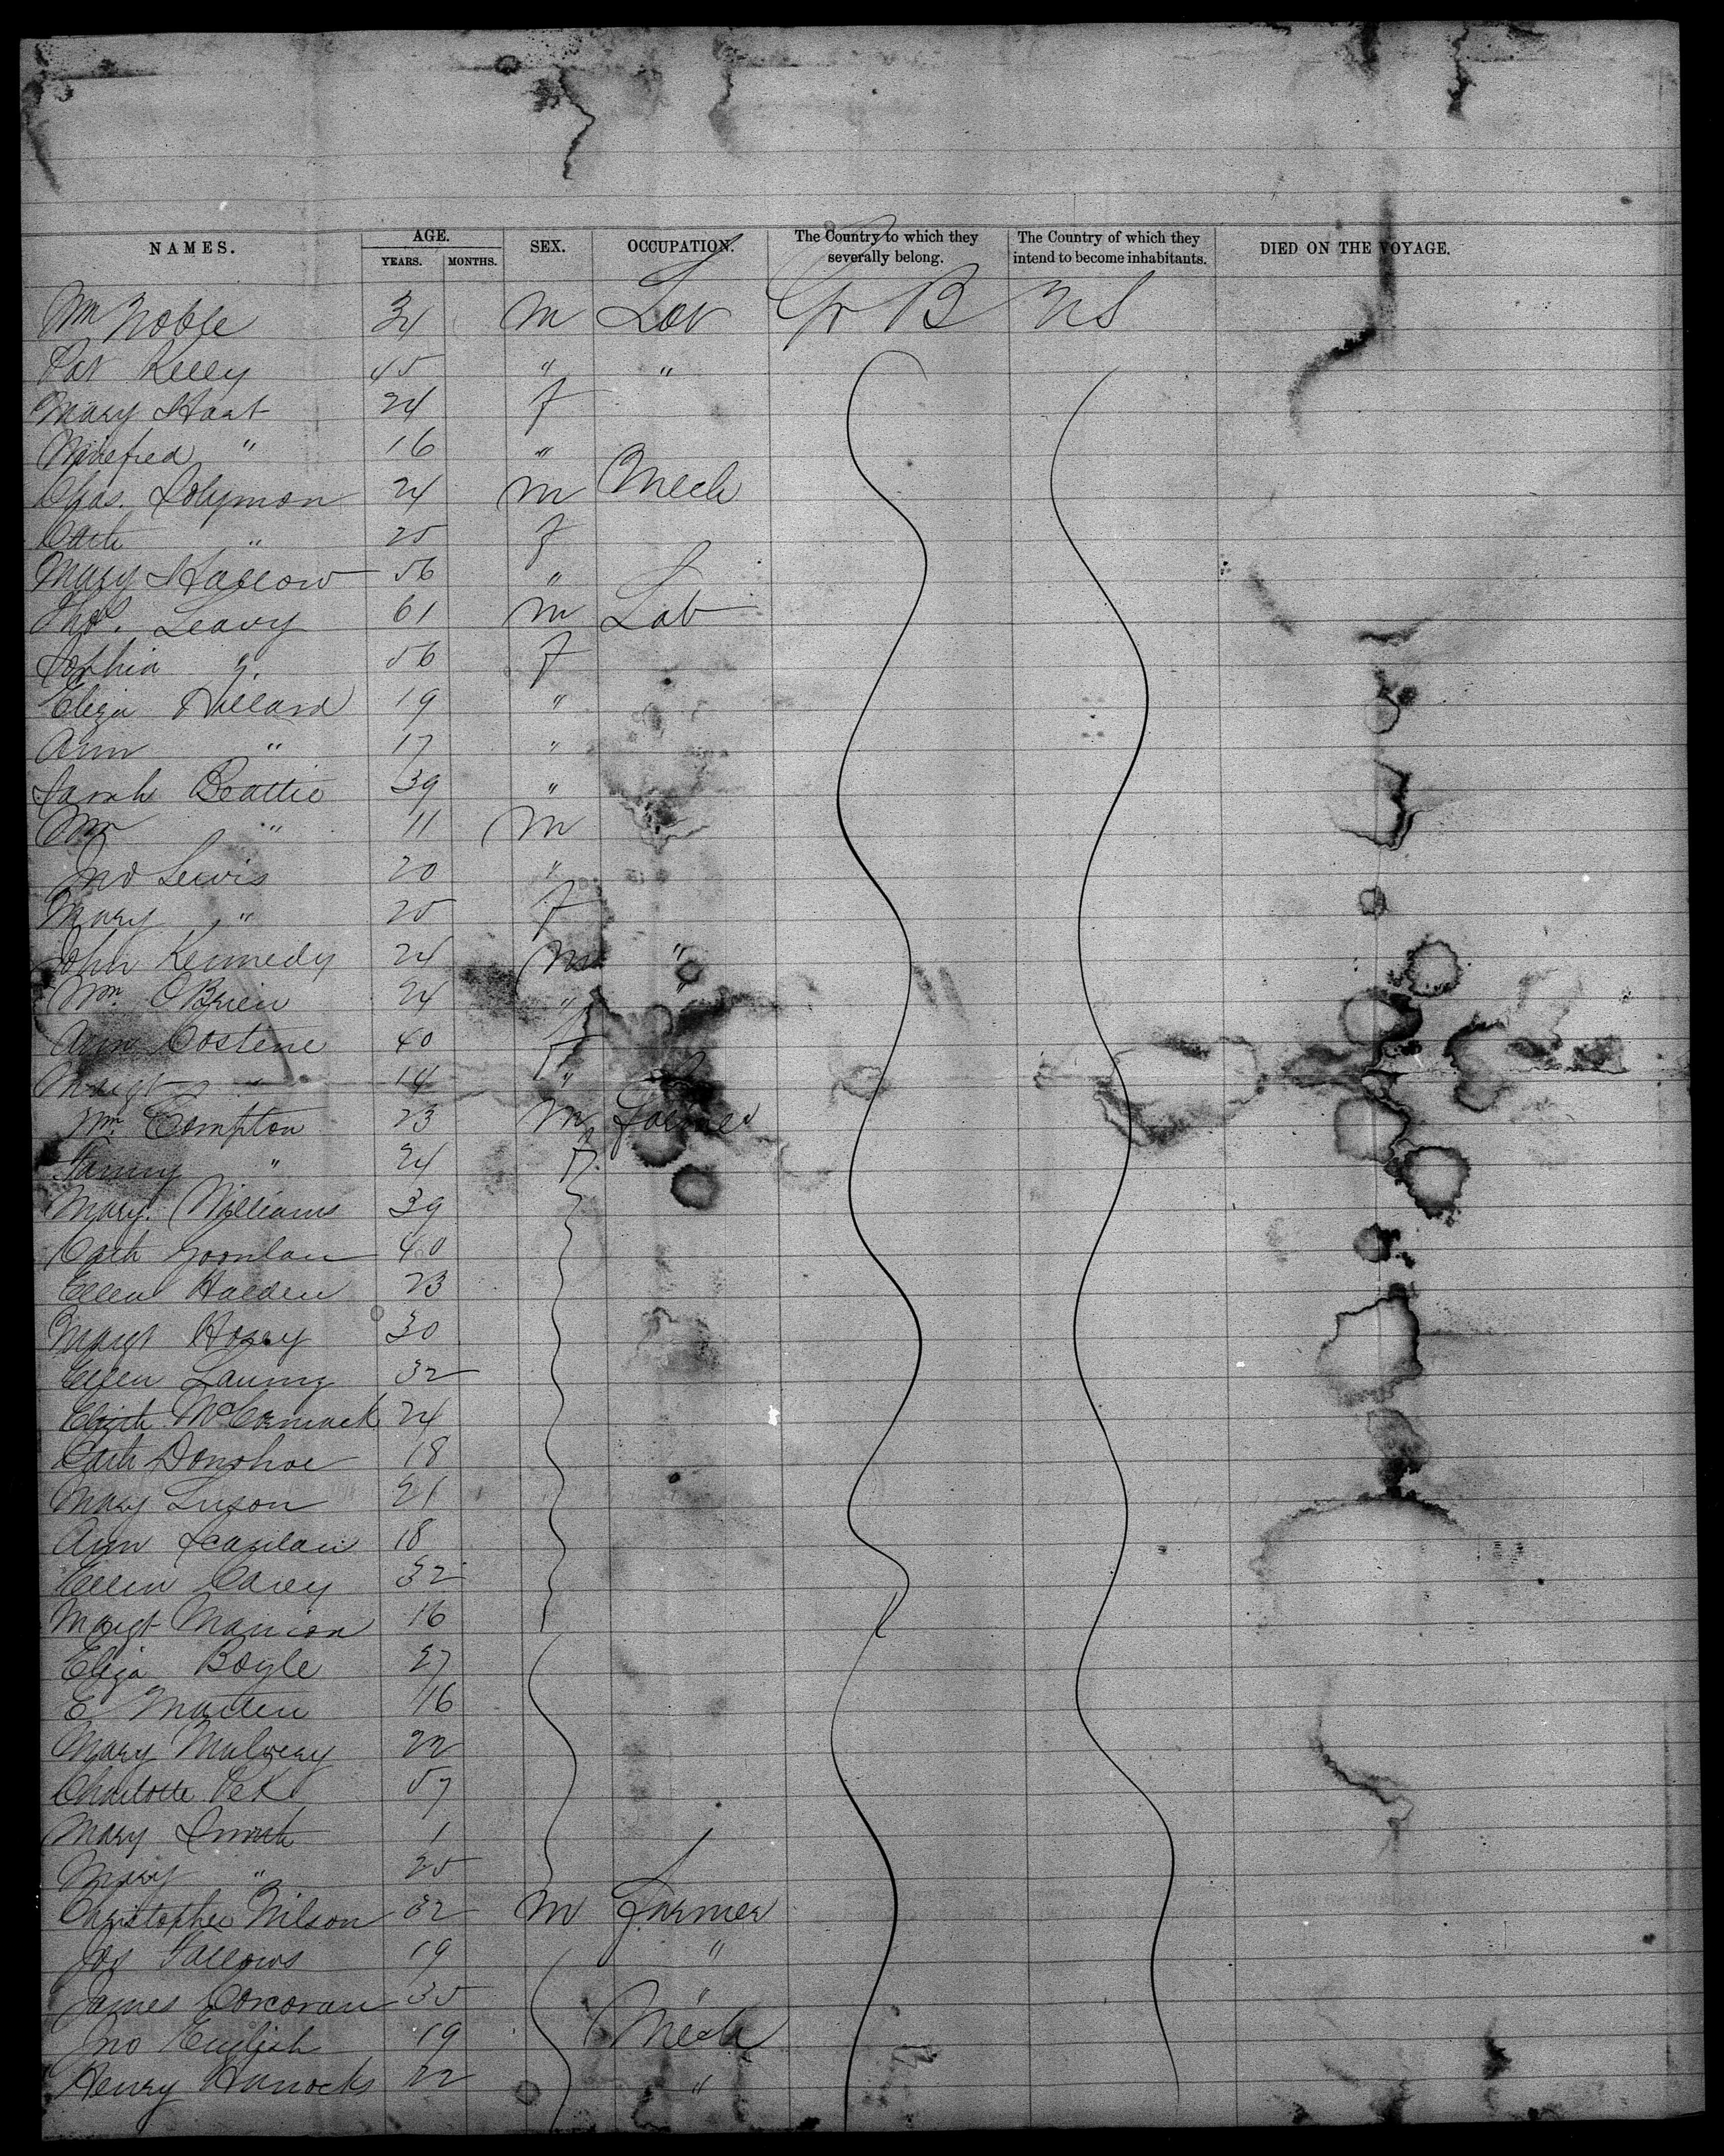 NAMES. AGE. YEARS. MONTHS. SEX. OCCUPATION. The Country to which they severally belong. The Country of which they intend to become inhabitants. DIED ON THE VOYAGE.
Wm Noble 34 M Lab Gr B US
Pat Kelly 45 " "
Mary Hart 24 f
Winefred " 16 "
Chas. Solymon 24 M Mech
Cath " 25 f
Mary Harlow 56 "
Thos. Leavy 61 M Lab
Sophia " 56 f
Eliza Hillard 19 "
Ann " 17 "
Sarah Beattie 39 "
Wm " 11 M
Jno Lewis 20 "
Mary " 25 f
John Kennedy 24 M "
Wm. OBrien 24 " "
Ann Costene 40 f
Margt " 14 "
Wm. Compton 23 M Farmer
Fanny " 24 f
Mary. Williams 39
Cath 40
Ellen Halden 23
Margt 30
Ellen Launy 32
McCormack 24
Cath Donohoe 18
Mary Luson 21
Ann Scanlan 18
Ellen Carey 32
Margt Manion 16
Eliza Boyle 27
E Marten 16
Mary Mulvery 22
Charlotte Pek 57
Mary Smith 1
Mary " 25
Christopher Wilson 32 M Farmer
Jos Fallows 19 "
James Corcoran 35 "
Jno English 19 Mech
Henry 22 "